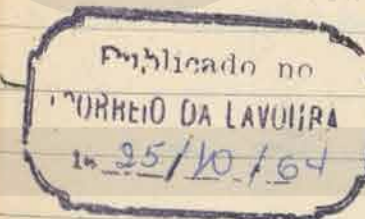 Publicado no
CORREIO DA LAVOURA
25/10/64